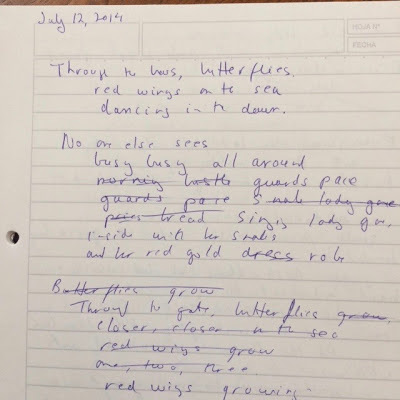 July 12, 2014
HOJA Nº
FECHA
Through th bars, butterflies.
red wings on th sea
dancing in th dawn.
No one else sees
busy busy all around
morning bustle guards pace
guards pace snake lady gone
bread Sing lady gone,
inside with her snakes
and her red gold dress robe
Butterflies grow
Through th gate, butterflies grow.
closer, closer on th sea
red wings grow
one, two, three.
red wings growing